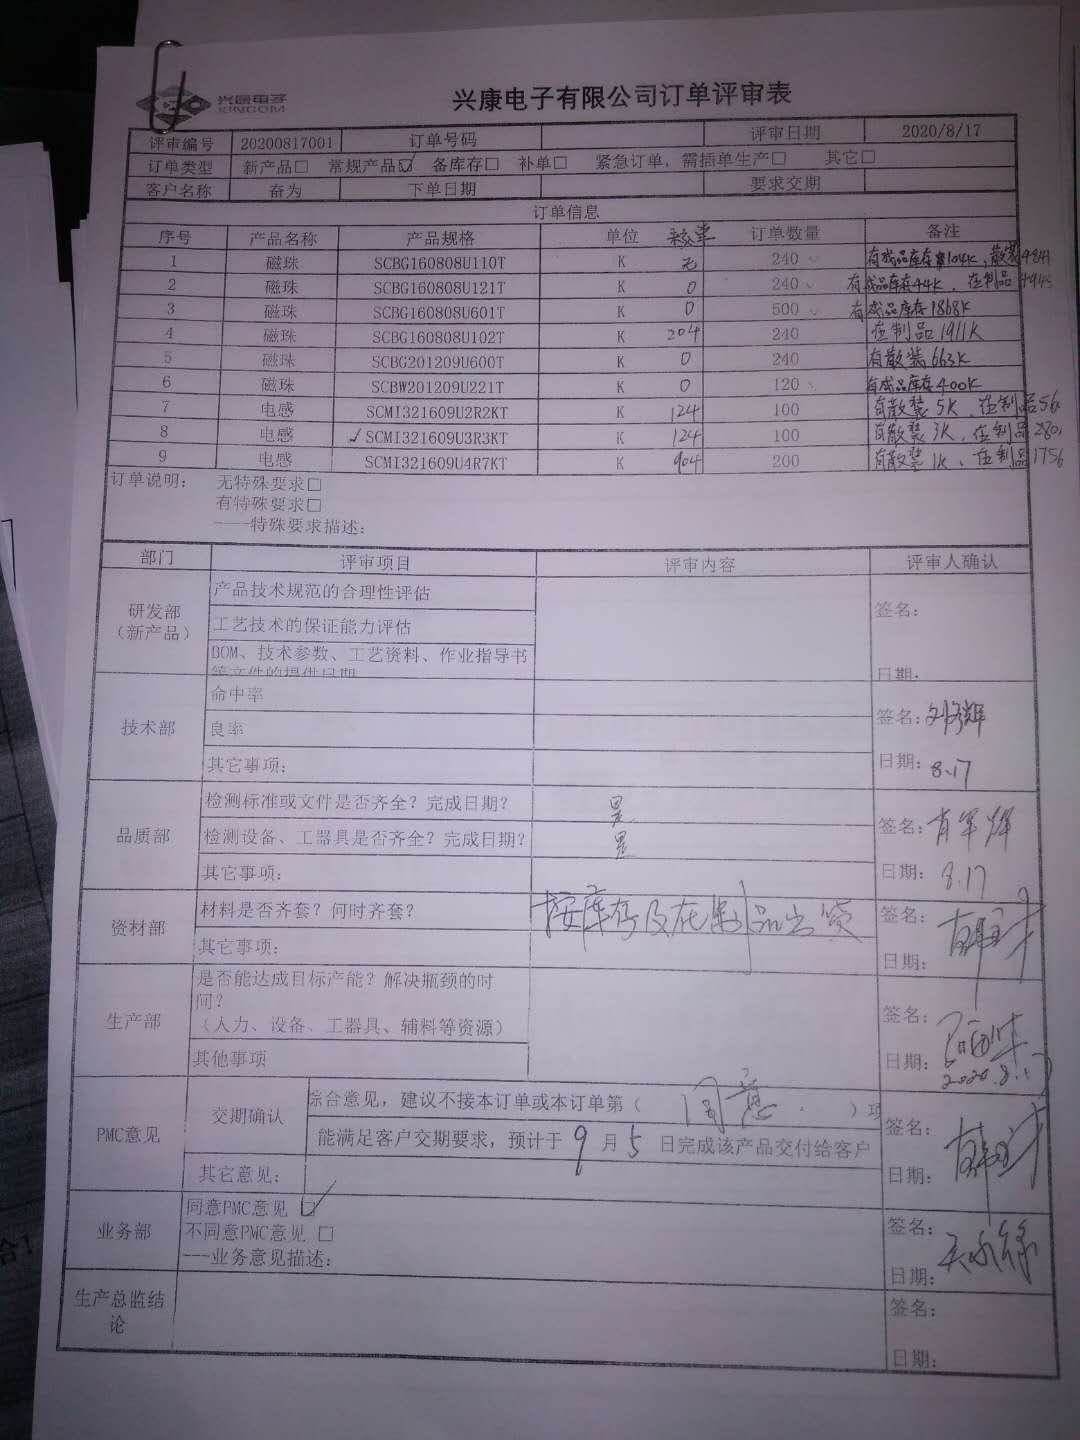 兴康电子 XINCOM
兴康电子有限公司订单评审表
评审编号 20200817001 订单号码 评审日期 2020/8/17
订单类型 新产品□ 常规产品☑ 备库存□ 补单□ 紧急订单，需插单生产□ 其它□
客户名称 奋为 下单日期 要求交期
订单信息
序号 产品名称 产品规格 单位 未交单 订单数量 备注
1 磁珠 SCBG160808U110T K 无 240 有成品库存104K，散装4841
2 磁珠 SCBG160808U121T K 0 240 有成品库存44K，在制品4945
3 磁珠 SCBG160808U601T K 0 500 有成品库存1868K
4 磁珠 SCBG160808U102T K 204 240 在制品1911K
5 磁珠 SCBG201209U600T K 0 240 有散装663K
6 磁珠 SCBW201209U221T K 0 120 有成品库存400K
7 电感 SCMI321609U2R2KT K 124 100 有散装5K、在制品56
8 电感 ✓SCMI321609U3R3KT K 124 100 有散装3K、在制品280
9 电感 SCMI321609U4R7KT K 904 200 有散装1K、在制品1756
订单说明： 无特殊要求□
有特殊要求□
----特殊要求描述：
部门 评审项目 评审内容 评审人确认
研发部（新产品） 产品技术规范的合理性评估 签名：
工艺技术的保证能力评估
BOM、技术参数、工艺资料、作业指导书
等文件的提供日期 日期：
技术部 命中率 签名：
良率
其它事项： 日期：8.17
品质部 检测标准或文件是否齐全？完成日期？ 是 签名：肖军辉
检测设备、工器具是否齐全？完成日期？ 是
其它事项： 日期：8.17
资材部 材料是否齐套？何时齐套？ 按库存及在制品出货 签名：
其它事项： 日期：
生产部 是否能达成目标产能？解决瓶颈的时
间？ 签名：
（人力、设备、工器具、辅料等资源）
其他事项 日期：2020.8.17
PMC意见 交期确认 综合意见，建议不接本订单或本订单第（ 同意 ）项 签名：
能满足客户交期要求，预计于 9 月 5 日完成该产品交付给客户
其它意见： 日期：
业务部 同意PMC意见 ☑ 签名：
不同意PMC意见 □
---业务意见描述： 日期：
生产总监结论 签名：
日期：